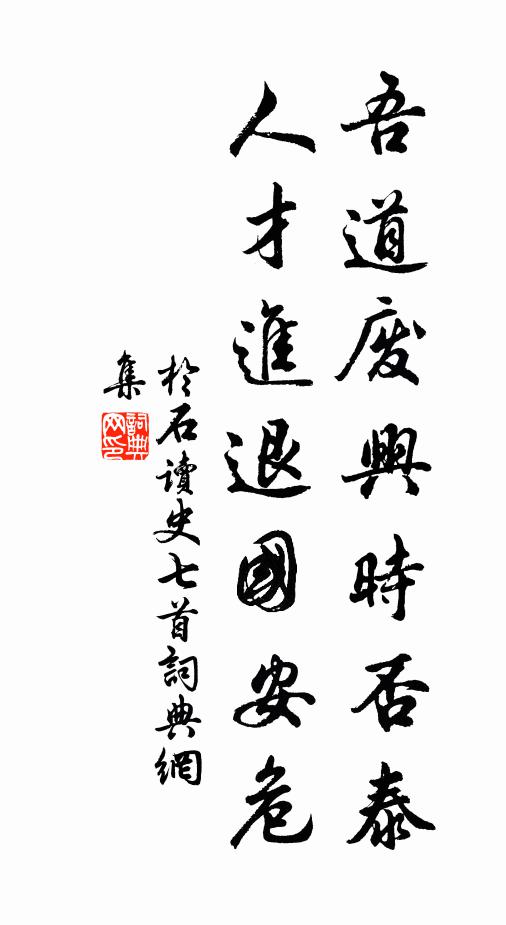 吾道废興時否泰
人才進退國安危
於石讀史七首詞典網
集
詞典
网印